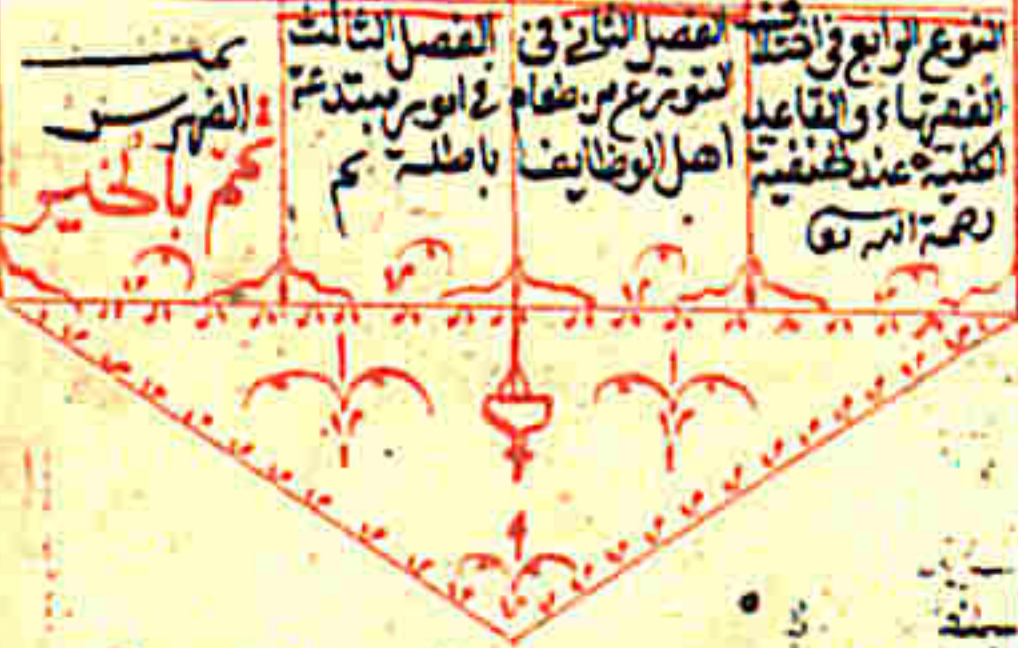 النوع الرابع في اختلاف
الفقهاء والقاعدة
الكلية عند الحنفية
رحمة الله تع
الفصل الثاني في
التورع من طعام
اهل الوظايف
الفصل الثالث
في امور مبتدعة
باطلة تم
تمـــــت
الفهرس
تمم بالخير